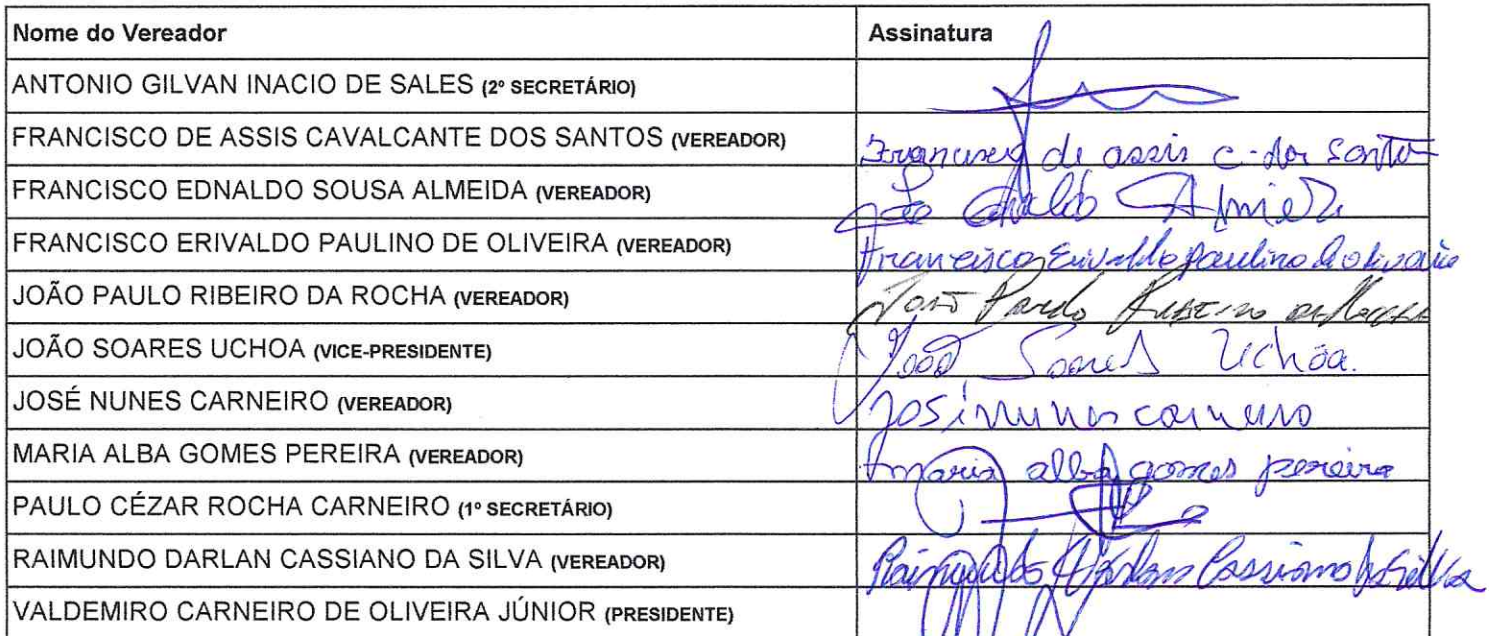 Nome do Vereador Assinatura
ANTONIO GILVAN INACIO DE SALES (2º SECRETÁRIO)
FRANCISCO DE ASSIS CAVALCANTE DOS SANTOS (VEREADOR) Francisco de assis c. dos Santos
FRANCISCO EDNALDO SOUSA ALMEIDA (VEREADOR)
FRANCISCO ERIVALDO PAULINO DE OLIVEIRA (VEREADOR) Francisco Erivaldo Paulino de oliveira
JOÃO PAULO RIBEIRO DA ROCHA (VEREADOR) João Paulo Ribeiro da Rocha
JOÃO SOARES UCHOA (VICE-PRESIDENTE) João Soares Uchôa.
JOSÉ NUNES CARNEIRO (VEREADOR) José nunes carneiro
MARIA ALBA GOMES PEREIRA (VEREADOR) maria alba gomes pereira
PAULO CÉZAR ROCHA CARNEIRO (1º SECRETÁRIO)
RAIMUNDO DARLAN CASSIANO DA SILVA (VEREADOR) Raimundo Darlan Cassiano da Silva
VALDEMIRO CARNEIRO DE OLIVEIRA JÚNIOR (PRESIDENTE)